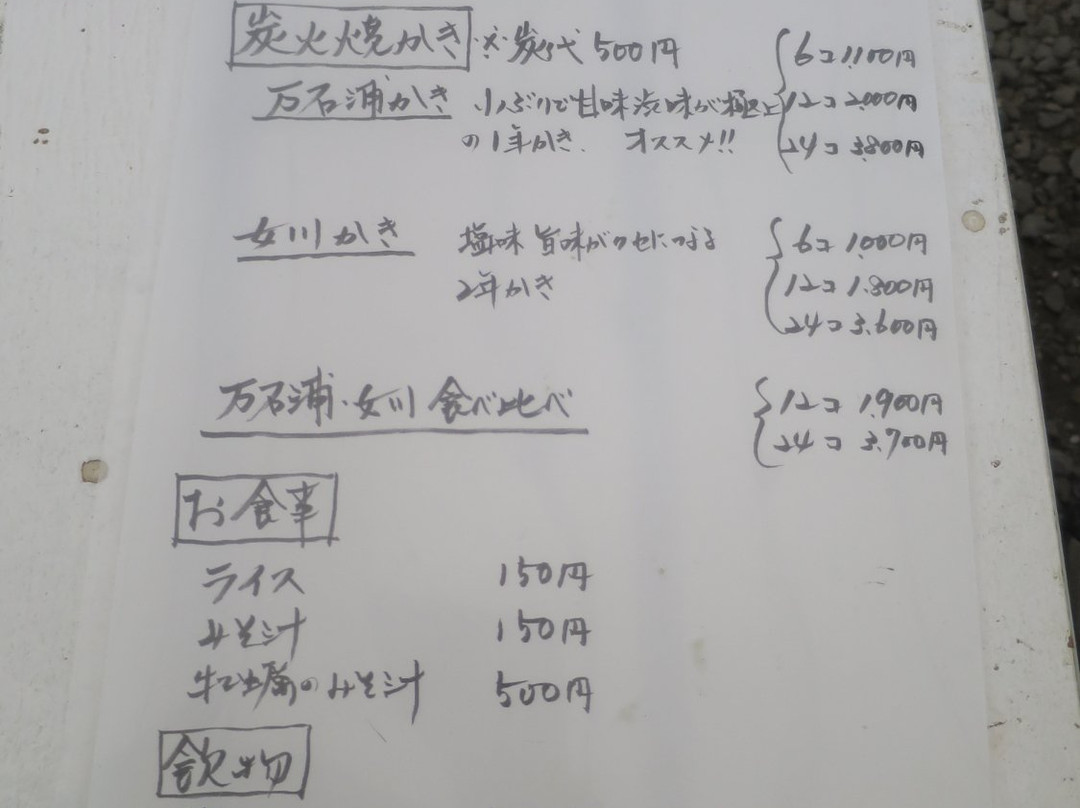 炭火焼かき ※炭代 500円
6コ 1,100円
万石浦かき 小ぶりで甘味渋味が極上
12コ 2,000円
の1年かき. オススメ!!
24コ 3,800円
女川かき 塩味 旨味がクセになる
6コ 1,000円
2年かき
12コ 1,800円
24コ 3,600円
万石浦・女川 食べ比べ
12コ 1,900円
24コ 3,700円
お食事
ライス 150円
みそ汁 150円
牡蠣のみそ汁 500円
飲物